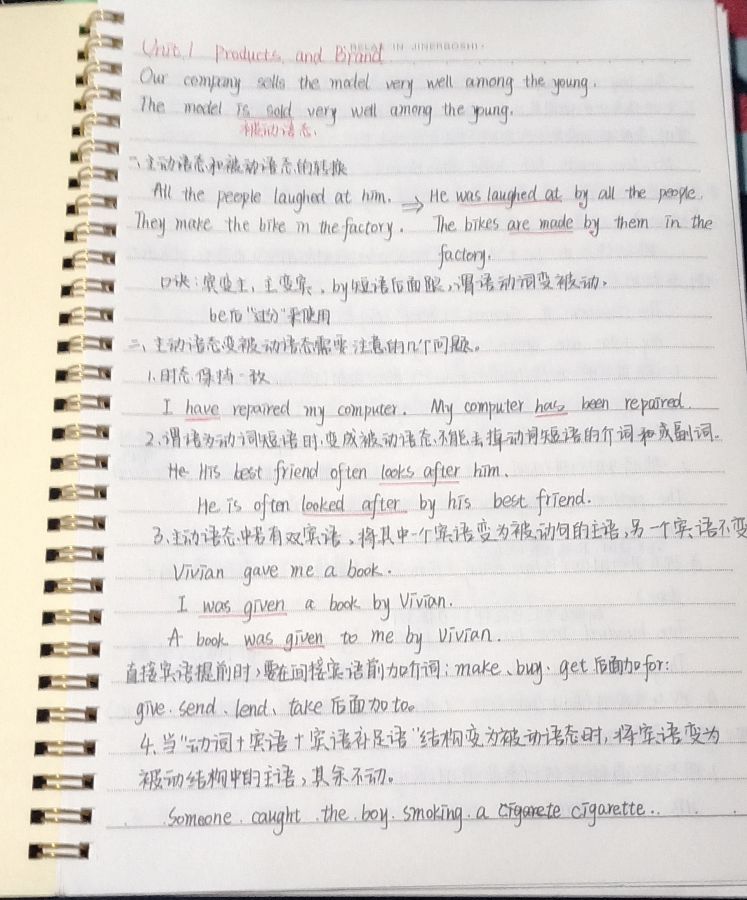 Unit.1 Products and Brand
RELAX IN JINGBOSHI.
Our company sells the model very well among the young.
The model is sold very well among the young.
被动语态.
二、主动语态和被动语态的转换
All the people laughed at him. ⇒ He was laughed at by all the people.
They make the bike in the factory. The bikes are made by them in the
factory.
口诀:宾变主、主变宾、by短语后面跟,谓语动词变被动、
be后"过分"来使用
三、主动语态变被动语态需要注意的几个问题。
1.时态保持一致
I have repaired my computer. My computer has been repaired.
2.谓语为动词短语时,变成被动语态,不能去掉动词短语的介词和或副词。
He His best friend often looks after him.
He is often looked after by his best friend.
3.主动语态中若有双宾语,将其中一个宾语变为被动句的主语,另一个宾语不变
Vivian gave me a book.
I was given a book by Vivian.
A book was given to me by Vivian.
直接宾语提前时,要在间接宾语前加介词:make、buy、get后面加for:
give、send、lend、take后面加to。
4.当"动词+宾语+宾语补足语"结构变为被动语态时,将宾语变为
被动结构中的主语,其余不动。
Someone caught the boy smoking a cigarete cigarette..